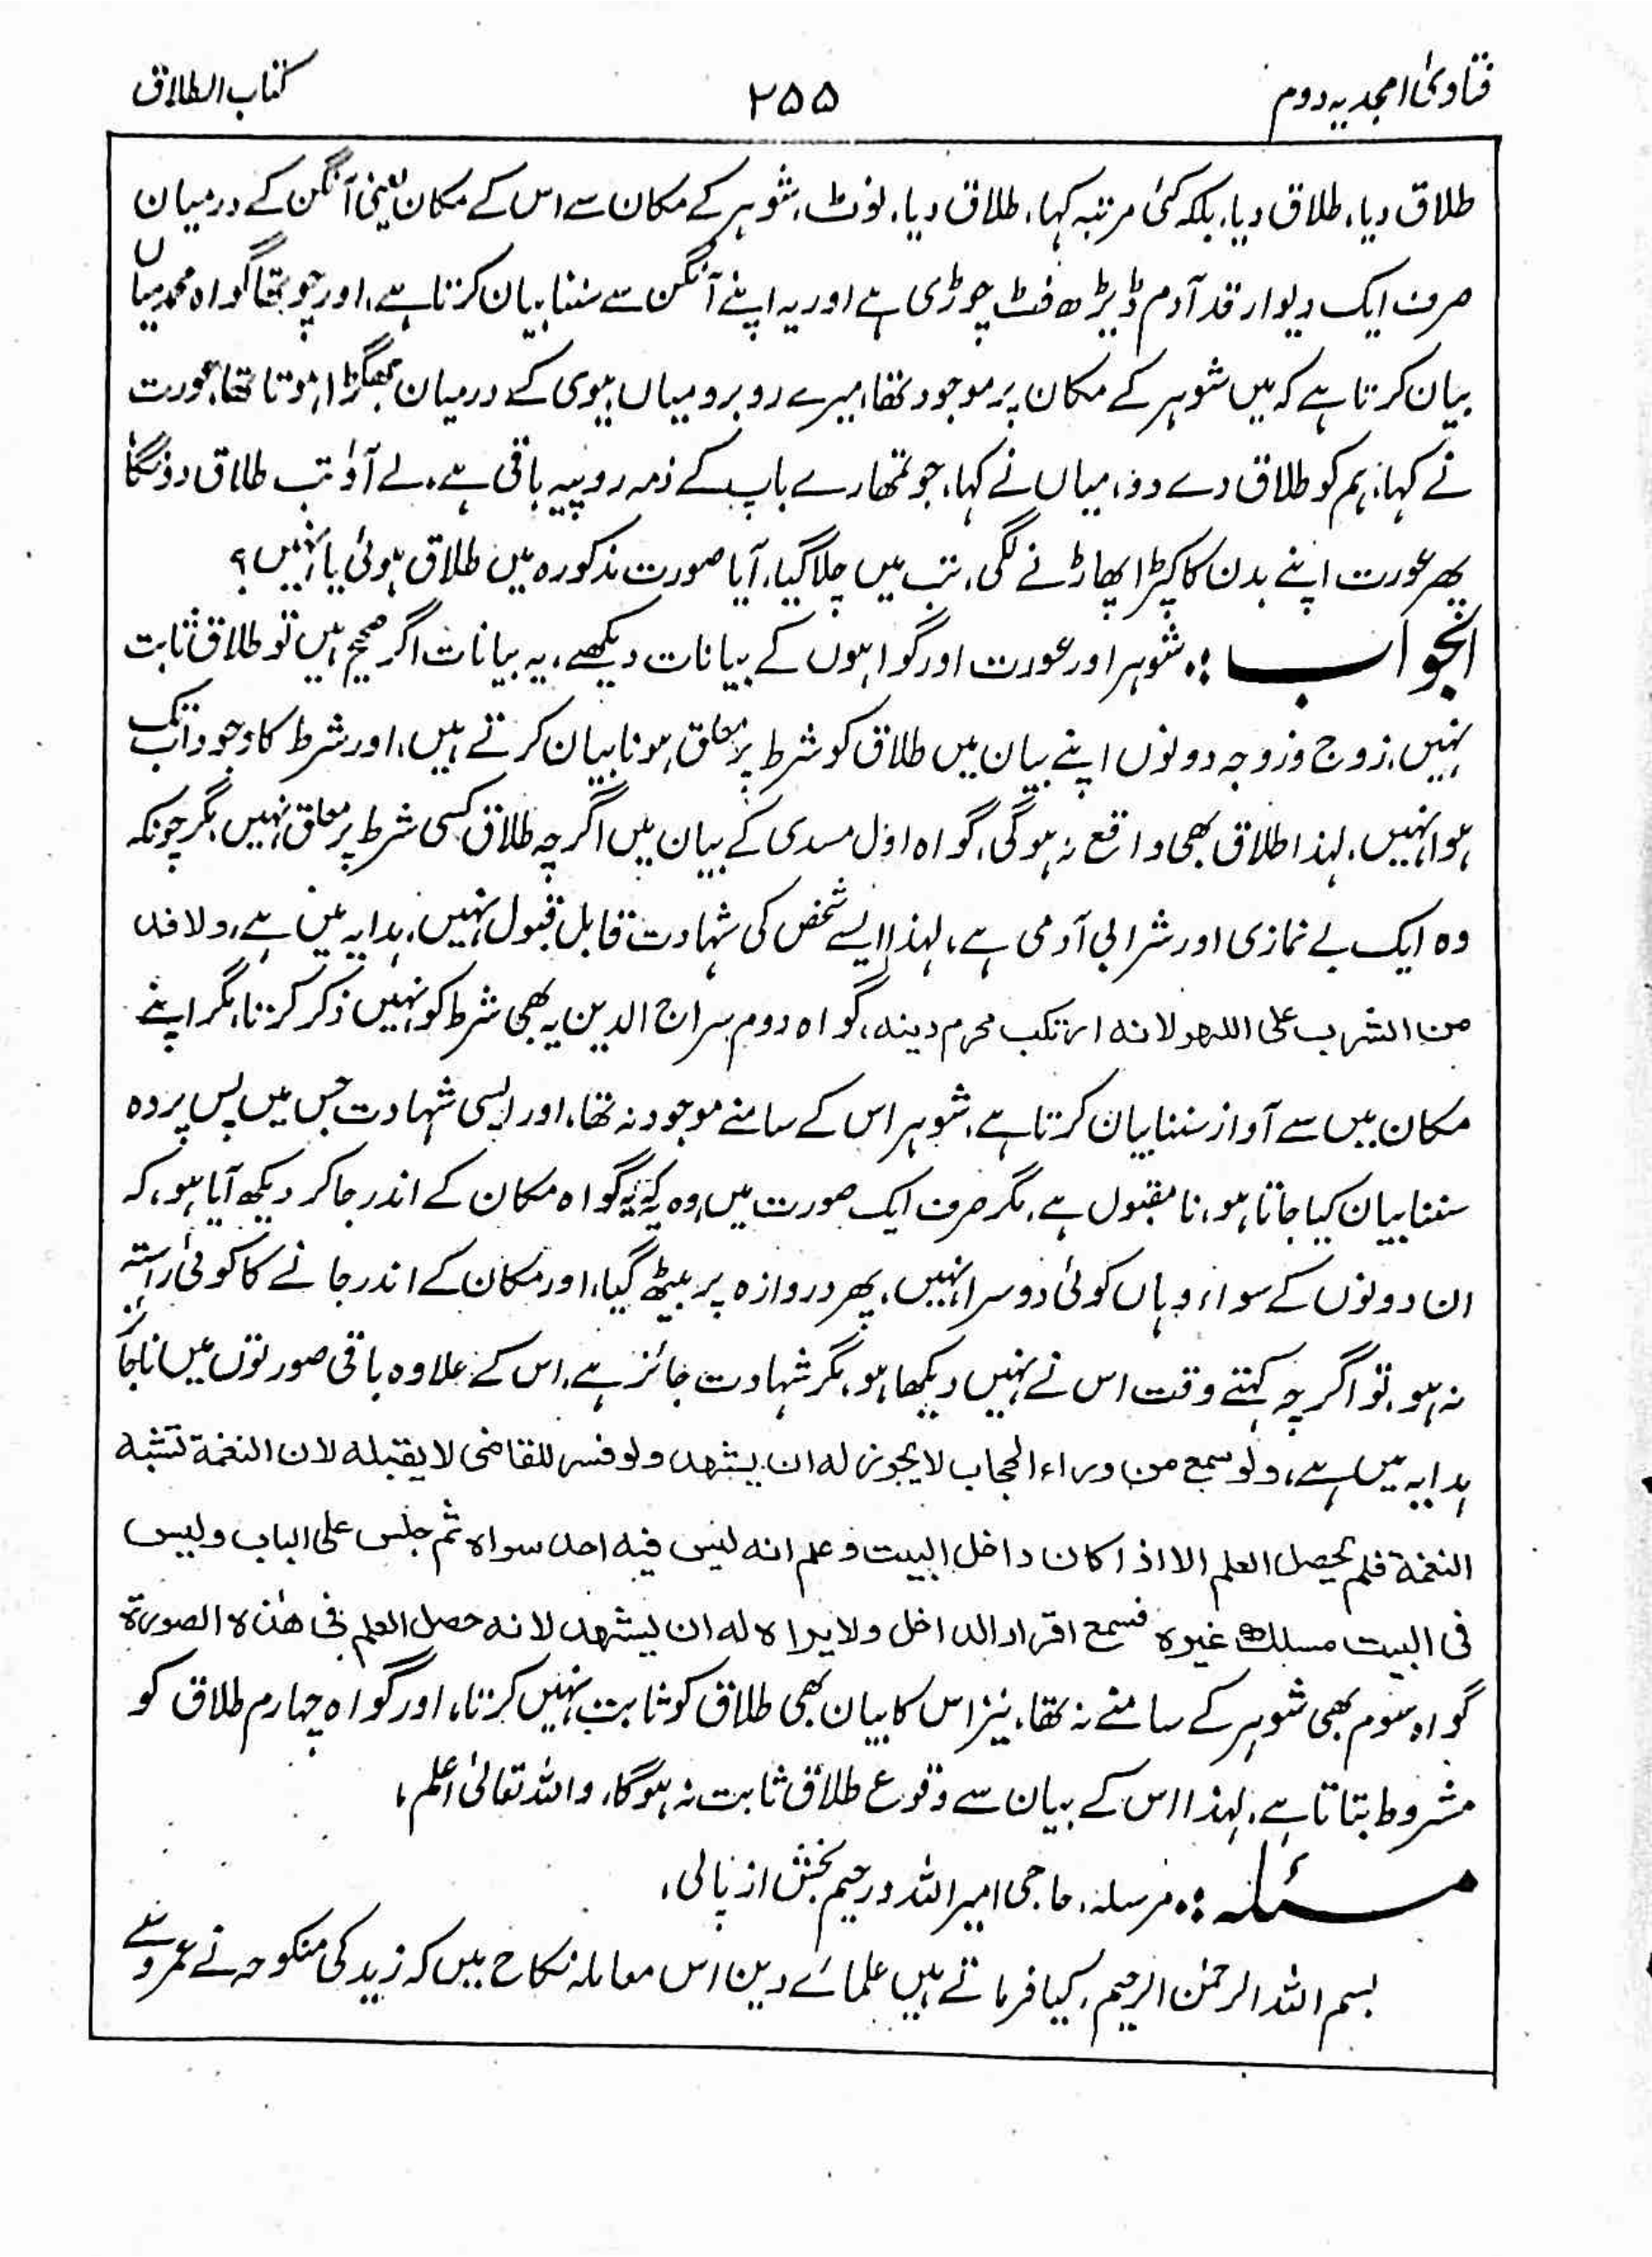 فتاویٰ امجدیہ دوم ۲۵۵ کتاب الطلاق
طلاق دیا، طلاق دیا، بلکہ کئی مرتبہ کہا، طلاق دیا، نوٹ، شوہر کے مکان سے اس کے مکان یعنی آنگن کے درمیان
صرف ایک دیوار قد آدم ڈیڑھ فٹ چوڑی ہے اور یہ اپنے آنگن سے سننا بیان کرتا ہے، اور چوتھا گواہ محمد میاں
بیان کرتا ہے کہ میں شوہر کے مکان پر موجود تھا، میرے روبرو میاں بیوی کے درمیان جھگڑا ہوتا تھا، عورت
نے کہا، ہم کو طلاق دے دو، میاں نے کہا، جو تمھارے باپ کے ذمہ روپیہ باقی ہے، لے آؤ تب طلاق دونگا
پھر عورت اپنے بدن کا کپڑا پھاڑنے لگی، تب میں چلا گیا، آیا صورت مذکورہ میں طلاق ہوئی یا نہیں؟
الجواب :۔ شوہر اور عورت اور گواہوں کے بیانات دیکھے، یہ بیانات اگر صحیح ہیں تو طلاق ثابت
نہیں، زوج وزوجہ دونوں اپنے بیان میں طلاق کو شرط پر معلق ہونا بیان کرتے ہیں، اور شرط کا وجود اب تک
ہوا نہیں، لہذا طلاق بھی واقع نہ ہوگی، گواہ اول مسدی کے بیان میں اگرچہ طلاق کسی شرط پر معلق نہیں مگر چونکہ
وہ ایک بے نمازی اور شرابی آدمی ہے، لہذا ایسے شخص کی شہادت قابل قبول نہیں، ہدایہ میں ہے، ولا مد
من الشرب علی اللھو لانہ ارتکب محرم دینہ، گواہ دوم سراج الدین یہ بھی شرط کو نہیں ذکر کرتا، مگر اپنے
مکان میں سے آواز سننا بیان کرتا ہے، شوہر اس کے سامنے موجود نہ تھا، اور ایسی شہادت جس میں پس پردہ
سننا بیان کیا جاتا ہو، نامقبول ہے، مگر صرف ایک صورت میں وہ یہ کہ یہ گواہ مکان کے اندر جاکر دیکھ آیا ہو، کہ
ان دونوں کے سواء وہاں کوئی دوسرا نہیں، پھر دروازہ پر بیٹھ گیا، اور مکان کے اندر جانے کا کوئی راستہ
نہ ہو، تو اگرچہ کہتے وقت اس نے نہیں دیکھا ہو، مگر شہادت جائز ہے، اس کے علاوہ باقی صورتوں میں ناجائز
ہدایہ میں ہے، ولو سمع من وراء الحجاب لا یجوز لہ ان یشھد ولو فسر للقاضی لا یقبلہ لان النغمۃ تشبہ
النغمۃ فلم یحصل العلم الا اذا کان داخل البیت وعلم انہ لیس فیہ احد سواہ ثم جلس علی الباب ولیس
فی البیت مسلک غیرہ فسمع اقرار الداخل ولا یراہ لہ ان یشھد لانہ حصل العلم فی ھذہ الصورۃ
گواہ سوم بھی شوہر کے سامنے نہ تھا، نیز اس کا بیان بھی طلاق کو ثابت نہیں کرتا، اور گواہ چہارم طلاق کو
مشروط بتاتا ہے، لہذا اس کے بیان سے وقوع طلاق ثابت نہ ہوگا، واللہ تعالیٰ اعلم،
مسئلہ :۔ مرسلہ، حاجی امیر اللہ ورحیم بخش از پالی،
بسم اللہ الرحمٰن الرحیم، کیا فرماتے ہیں علمائے دین اس معاملہ نکاح میں کہ زید کی منکوحہ نے عمرو سے